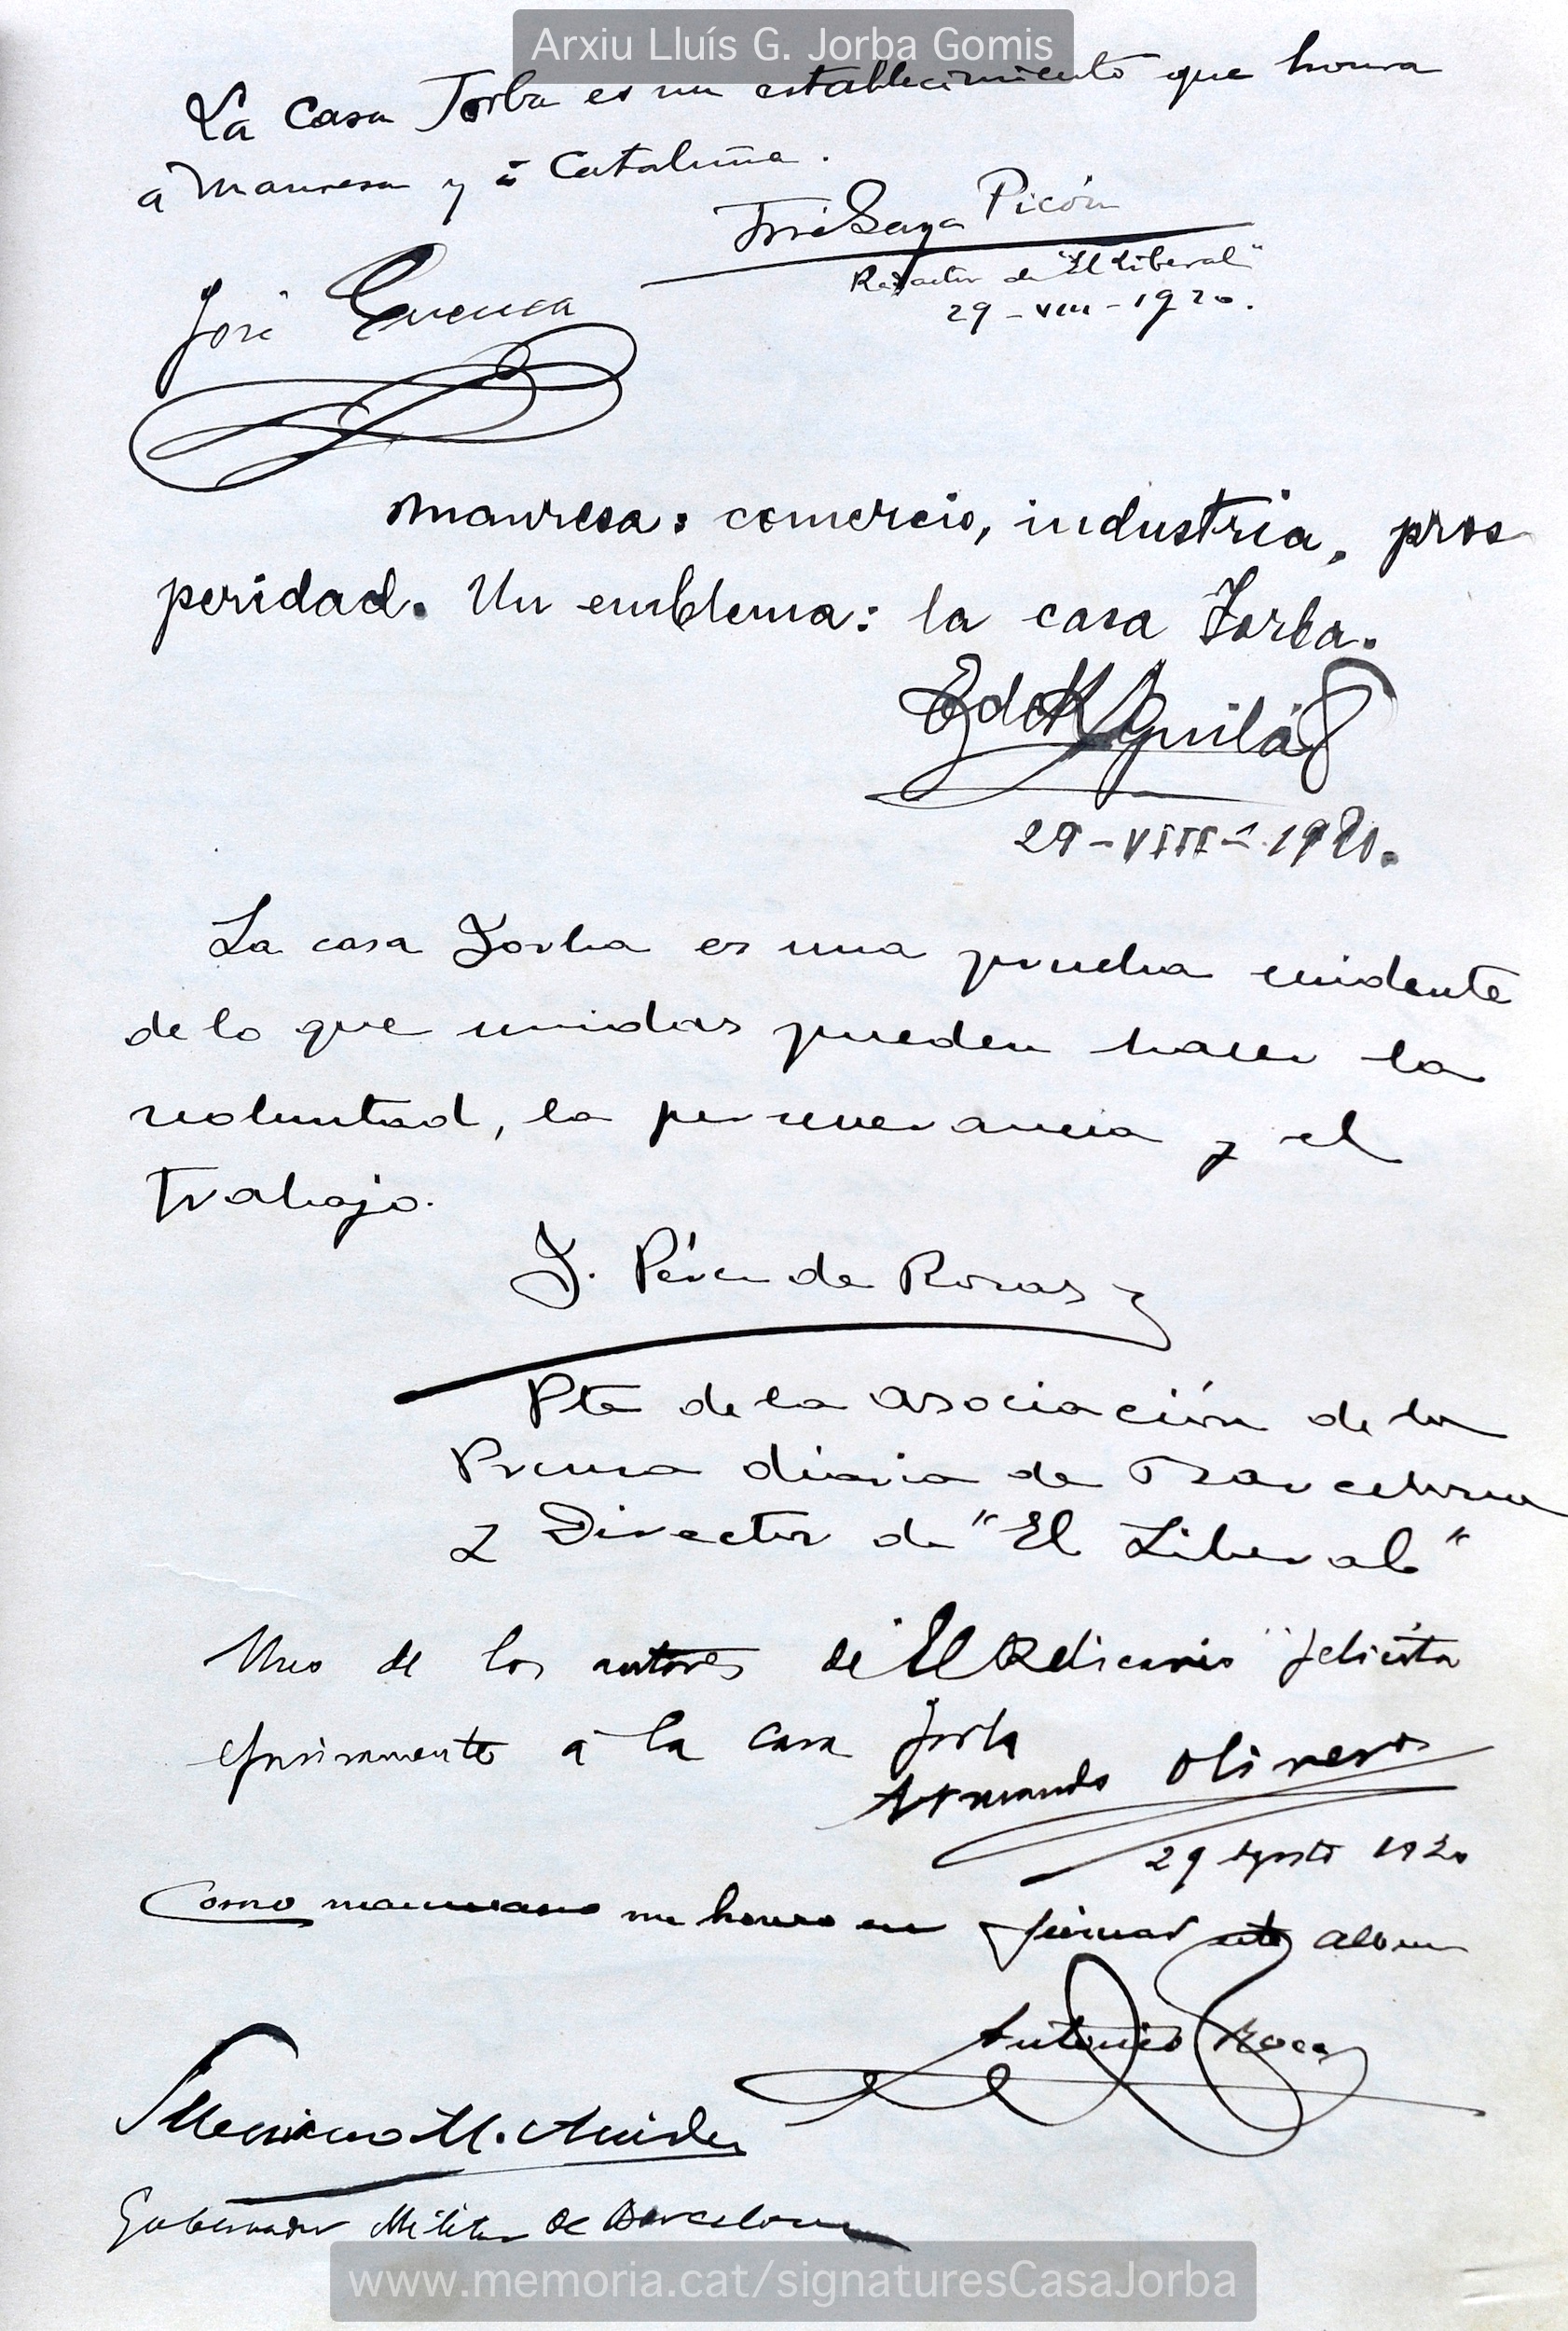 Arxiu Lluís G. Jorba Gomis
La Casa Jorba es un establecimiento que honra
á Manresa y á Cataluña.
José Gaya Picón
Redactor de "El Liberal"
29-VIII-1920.
José Cuenca
Manresa: comercio, industria, pros
peridad. Un emblema: la casa Jorba.
Aguilar
29-VIII-1920.
La casa Jorba es una prueba evidente
de lo que unidas pueden hacer la
voluntad, la perseverancia y el
trabajo.
J. Pérez de Rozas
Pte de la asociación de la
Prensa diaria de Barcelona
y Director de "El Liberal"
Uno de los autores de "El Relicario" felicita
efusivamente á la casa Jorba
Armando Oliveros
29 Agosto 1920
Como manresano me honro en firmar este album
Antonio Roca
M.
Gobernador Militar de Barcelona
www.memoria.cat/signaturesCasaJorba